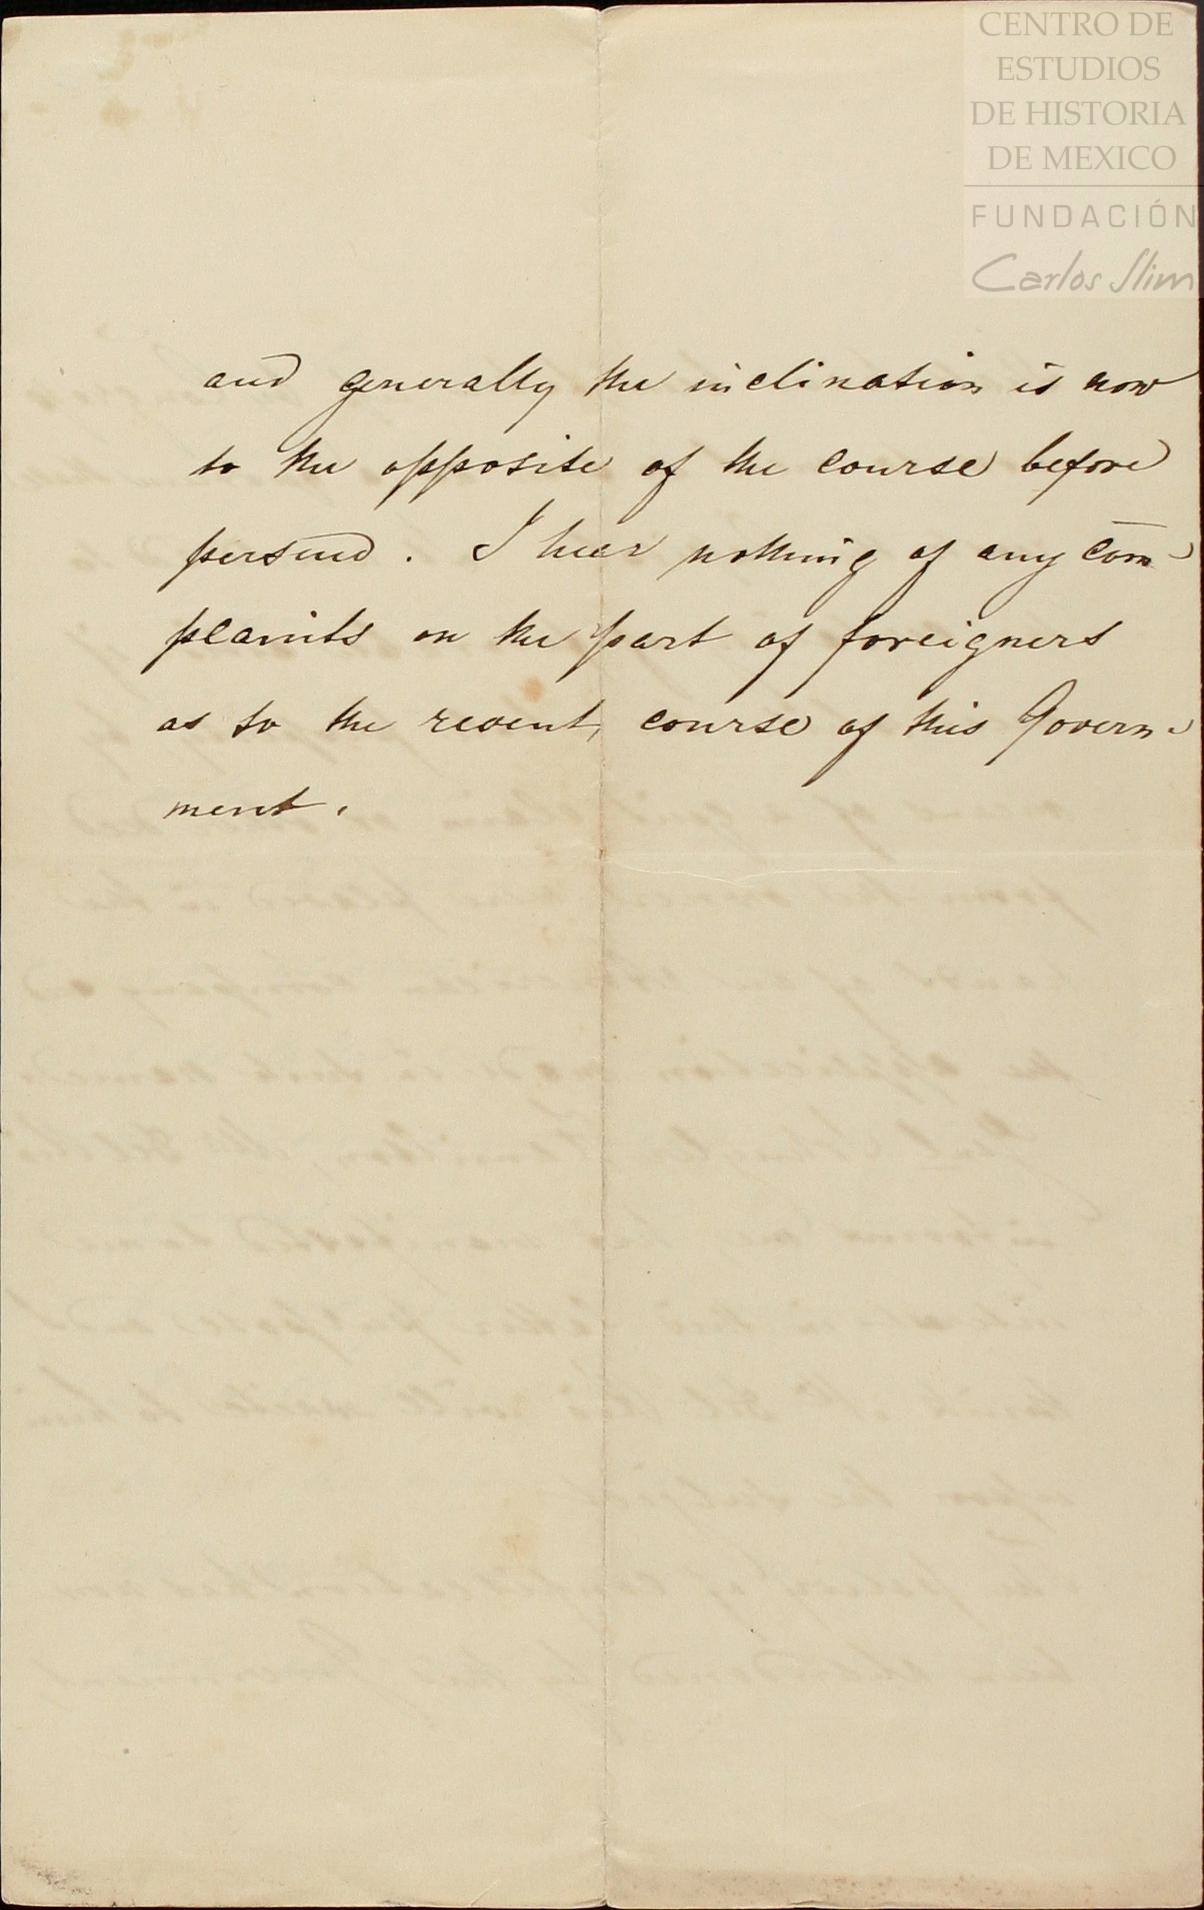 CENTRO DE
ESTUDIOS
DE HISTORIA
DE MEXICO
FUNDACIÓN
Carlos Slim
and generally the inclination is now
to the opposite of the course before
persued. I hear nothing of any com-
plaints on the part of foreigners
as to the recent, course of this Govern-
ment.